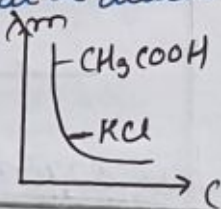 λm
CH3COOH
KCl
C